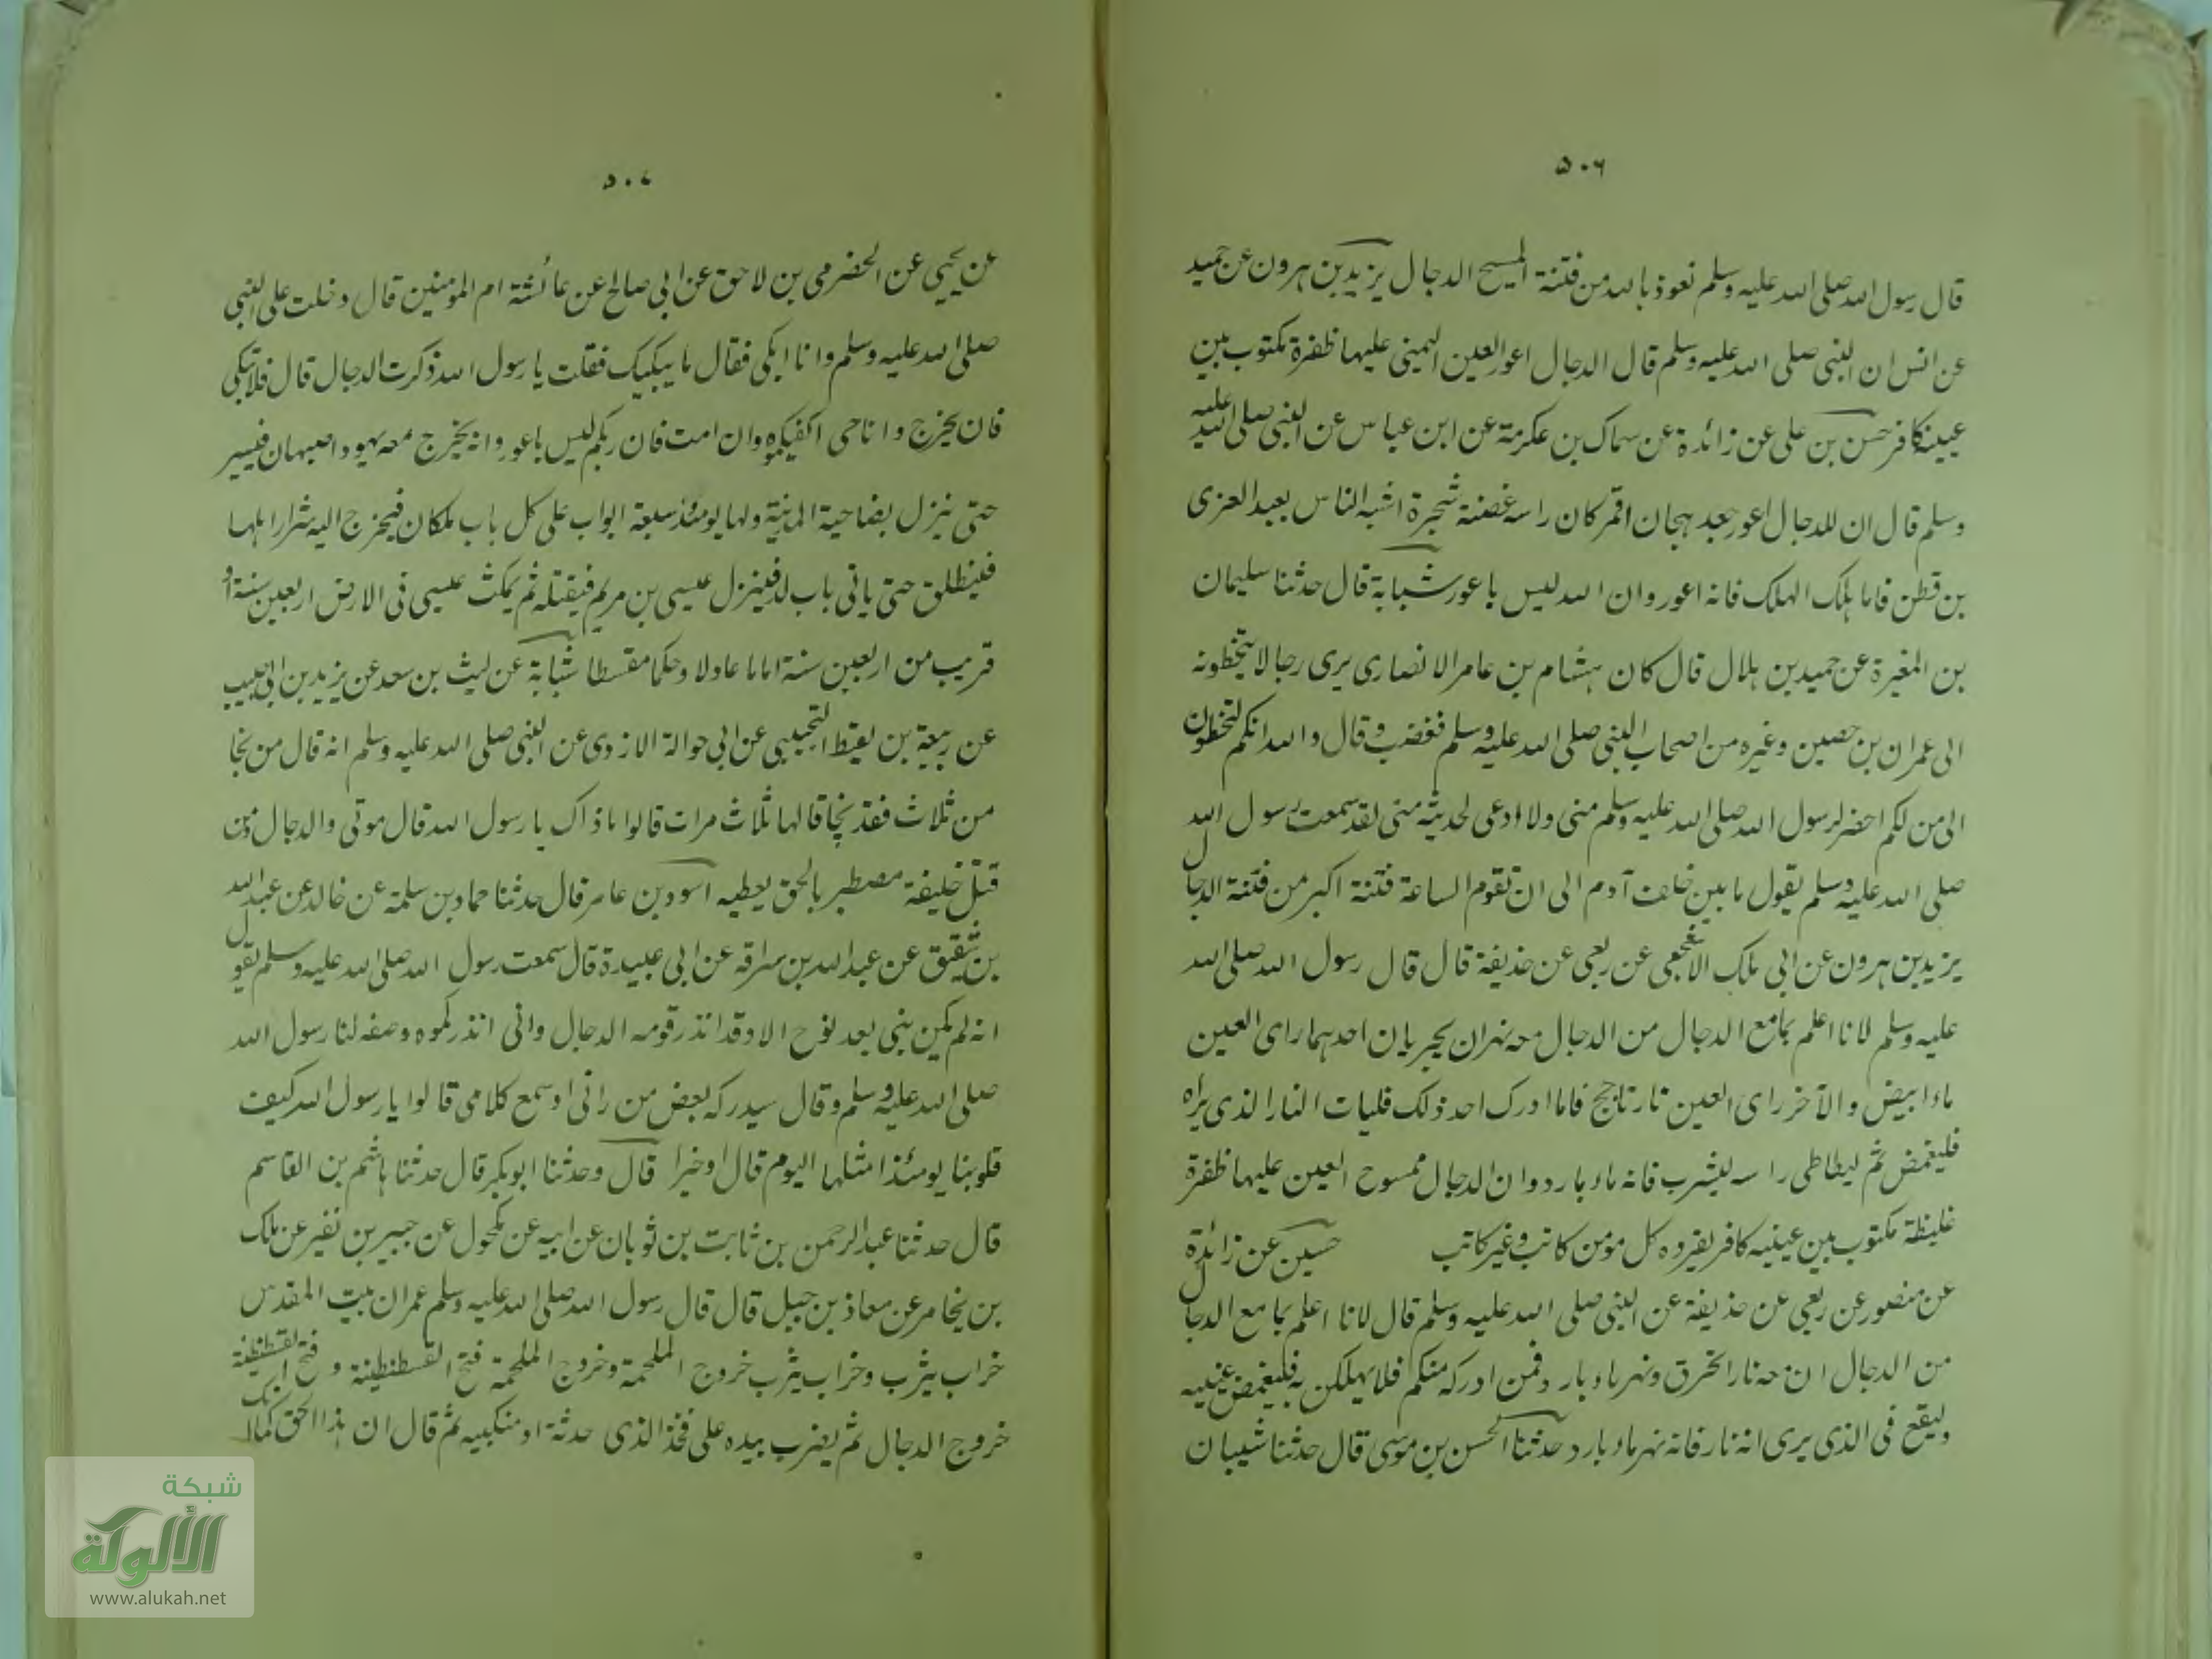 ٥٠٦
قال رسول الله صلى الله عليه وسلم نعوذ بالله من فتنة المسيح الدجال يزيد بن هرون عن حميد
عن انس ان النبي صلى الله عليه وسلم قال الدجال اعور العين اليمنى عليها ظفرة مكتوب بين
عينيه كافر حسن بن علي عن زائدة عن سماك بن عكرمة عن ابن عباس عن النبي صلى الله عليه
وسلم قال ان للدجال اعور جعد هجان اقمر كان راسه غصنة شجرة اشبه الناس بعبد العزى
بن قطن فاما هلك الهلك فانه اعور وان الله ليس باعور شبابة قال حدثنا سليمان
بن المغيرة عن حميد بن هلال قال كان هشام بن عامر الانصارى يرى رجالا يتخطونه
الى عمران بن حصين وغيره من اصحاب النبي صلى الله عليه وسلم فغضب وقال والله انكم لتخطون
الى من لكم احضر لرسول الله صلى الله عليه وسلم منى ولا اوعى لحديثه منى لقد سمعت رسول الله
صلى الله عليه وسلم يقول ما بين خلف آدم الى ان تقوم الساعة فتنة اكبر من فتنة الدجال
يزيد بن هرون عن ابى مالك الاشجعى عن ربعى عن حذيفة قال قال رسول الله صلى الله
عليه وسلم لانا اعلم بما مع الدجال من الدجال معه نهران يجريان احدهما راى العين
ماء ابيض والآخر راى العين نار تاجج فاما ادرك احد ذلك فليات النار الذى يراه
فليغمض ثم ليطاطى راسه ليشرب فانه ماء بارد وان الدجال ممسوح العين عليها ظفرة
غليظة مكتوب بين عينيه كافر يقروه كل مومن كاتب وغير كاتب حسين عن زائدة
عن منصور عن ربعى عن حذيفة عن النبي صلى الله عليه وسلم قال لانا اعلم بما مع الدجال
من الدجال ان معه نارا تحرق ونهر ماء بارد فمن ادركه منكم فلا يهلكن به فليغمض عينيه
وليقع فى الذى يرى انه نار فانه نهر ماء بارد حدثنا الحسن بن موسى قال حدثنا شيبان
٥٠٧
عن يحيى عن الحضرمى بن لاحق عن ابى صالح عن عائشة ام المومنين قال دخلت على النبي
صلى الله عليه وسلم وانا ابكى فقال ما يبكيك فقلت يا رسول الله ذكرت الدجال قال فلا تبكى
فان يخرج وانا حى اكفيكموه وان امت فان ربكم ليس باعور وانه يخرج معه يهود اصبهان فيسير
حتى ينزل بضاحية المدينة ولها يومئذ سبعة ابواب على كل باب ملكان فيخرج اليه شرار اهلها
فينطلق حتى ياتى باب لد فينزل عيسى بن مريم فيقتله ثم يمكث عيسى فى الارض اربعين سنة او
قريب من اربعين سنة اماما عادلا وحكما مقسطا شبابة عن ليث بن سعد عن يزيد بن ابى حبيب
عن ربيعة بن لقيط التجيبى عن ابى حوالة الازدى عن النبي صلى الله عليه وسلم انه قال من نجا
من ثلاث فقد نجا قالها ثلاث مرات قالوا ما ذاك يا رسول الله قال موتى والدجال ومن
قتل خليفة مصطبر بالحق يعطيه اسود بن عامر قال حدثنا حماد بن سلمة عن خالد عن عبد الله
بن شقيق عن عبد الله بن سراقه عن ابى عبيدة قال سمعت رسول الله صلى الله عليه وسلم يقول
انه لم يكن نبى بعد نوح الا وقد انذر قومه الدجال وانى انذركموه وصفه لنا رسول الله
صلى الله عليه وسلم وقال سيدركه بعض من رانى او سمع كلامى قالوا يا رسول الله كيف
قلوبنا يومئذ امثلها اليوم قال اوخيرا قال وحدثنا ابو بكر قال حدثنا هاشم بن القاسم
قال حدثنا عبد الرحمن بن ثابت بن ثوبان عن ابيه عن مكحول عن جبير بن نفير عن ملك
بن يخامر عن معاذ بن جبل قال قال رسول الله صلى الله عليه وسلم عمران بيت المقدس
خراب يثرب وخراب يثرب خروج الملحمة وخروج الملحمة فتح القسطنطينة وفتح القسطنطينة
خروج الدجال ثم يضرب بيده على فخذ الذى حدثه او منكبيه ثم قال ان هذا الحق كما انك
شبكة
الألوكة
www.alukah.net